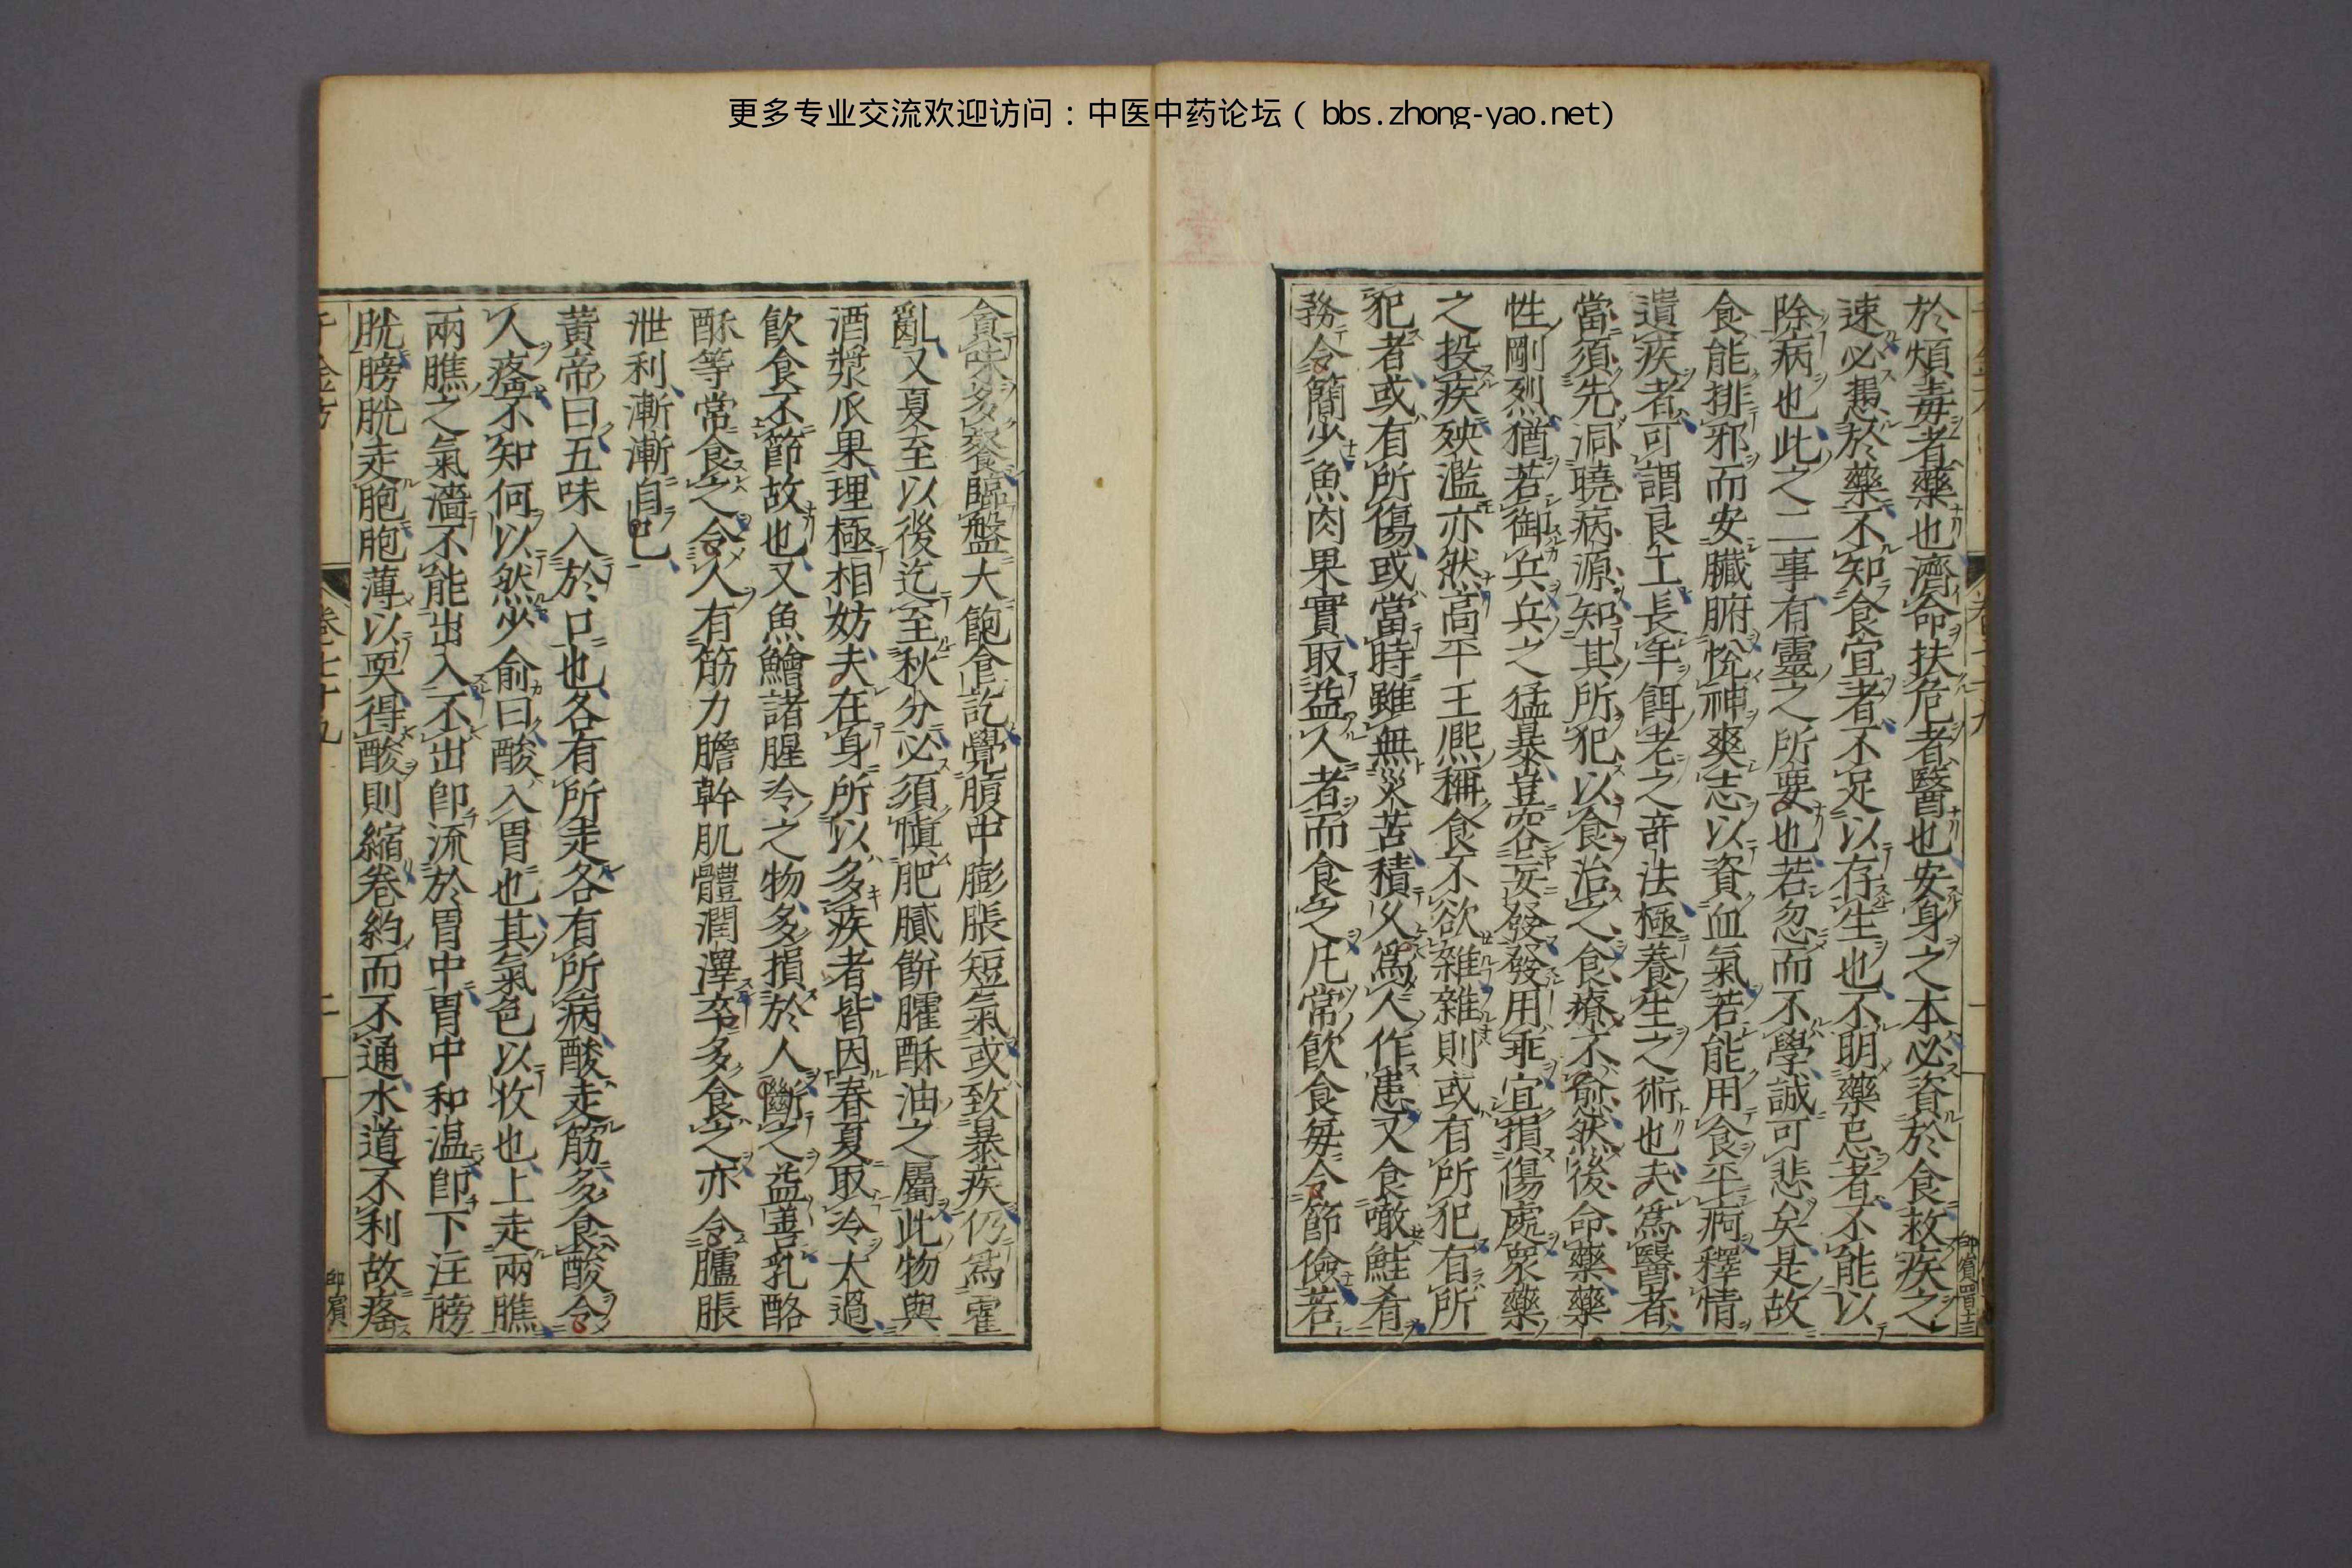 更多专业交流欢迎访问：中医中药论坛（ bbs.zhong-yao.net)
於煩毒者藥也濟命扶危者醫也安身之本必資於食救疾之
速必憑於藥不知食宜者不足以存生也不明藥忌者不能以
除病也此之二事有靈之所要也若忽而不學誠可悲矣是故
食能排邪而安臟腑悅神爽志以資血氣若能用食平痾釋情
遣疾者可謂良工長年餌老之奇法極養生之術也夫爲醫者
當須先洞曉病源知其所犯以食治之食療不愈然後命藥藥
性剛烈猶若御兵兵之猛暴豈容妄發發用乖宜損傷處衆藥
之投疾殃濫亦然高平王熈稱食不欲雜雜則或有所犯有所
犯者或有所傷或當時雖無災苦積久爲人作患又食噉鮭肴
務令簡少魚肉果實取益人者而食之凡常飲食每令節儉若
貪味多餐臨盤大飽食訖覺腹中膨脹短氣或致暴疾仍爲霍
亂又夏至以後迄至秋分必須慎肥膩餅臛酥油之屬此物與
酒漿瓜果理極相妨夫在身所以多疾者皆因春夏取冷太過
飲食不節故也又魚鱠諸腥冷之物多損於人斷之益善乳酪
酥等常食之令人有筋力膽幹肌體潤澤卒多食之亦令臚脹
泄利漸漸自已
黃帝曰五味入於口也各有所走各有所病酸走筋多食酸令
人癃不知何以然少俞曰酸入胃也其氣色以收也上走兩膲
兩膲之氣濇不能出入不出卽流於胃中胃中和温卽下注膀
胱膀胱走胞胞薄以耎得酸則縮卷約而不通水道不利故癃
千金方
卷七十九
二